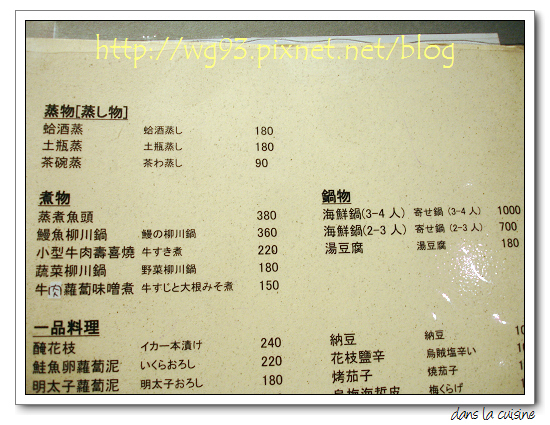 http://wg93.pixnet.net/blog
蒸物[蒸し物]
蛤酒蒸 蛤酒蒸し 180
土瓶蒸 土瓶蒸し 180
茶碗蒸 茶わ蒸し 90
煮物
蒸煮魚頭 380
鰻魚柳川鍋 鰻の柳川鍋 360
小型牛肉壽喜燒 牛すき煮 220
蔬菜柳川鍋 野菜柳川鍋 180
牛肉蘿蔔味噌煮 牛すじと大根みそ煮 150
鍋物
海鮮鍋(3-4 人) 寄せ鍋 (3-4 人) 1000
海鮮鍋(2-3 人) 寄せ鍋 (2-3 人) 700
湯豆腐 湯豆腐 180
一品料理
醃花枝 イカ一本漬け 240
鮭魚卵蘿蔔泥 いくらおろし 220
明太子蘿蔔泥 明太子おろし 180
納豆 納豆
花枝鹽辛 烏賊塩辛い
烤茄子 焼茄子
烏梅海蜇皮 梅くらげ
dans la cuisine